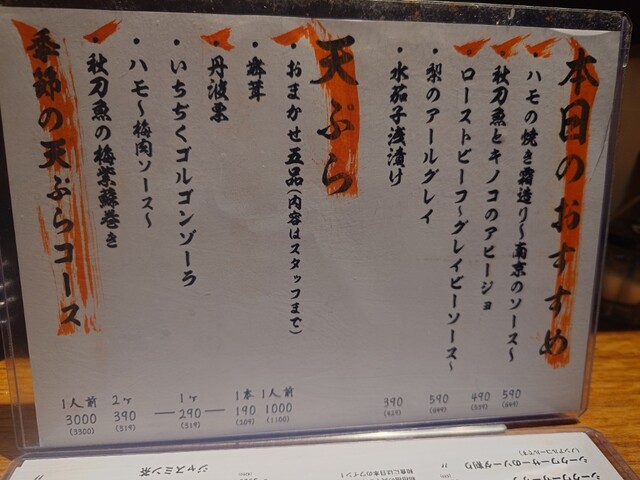 本日のおすすめ
・ハモの焼き霜造り〜南京のソース〜 590 (649)
・秋刀魚とキノコのアヒージョ 490 (539)
・ローストビーフ〜グレイビーソース〜 590 (649)
・梨のアールグレイ 390 (429)
・水茄子浅漬け
天ぷら
・おまかせ五品(内容はスタッフまで) 1人前 1000 (1100)
・舞茸 1本 190 (209)
・丹波栗
・いちぢくゴルゴンゾーラ 1ヶ 290 (319)
・ハモ〜梅肉ソース〜
・秋刀魚の梅紫蘇巻き 2ヶ 390 (319)
季節の天ぷらコース 1人前 3000 (3300)
ジャスミン茶
シークワーサーのソーダ割り
(ノンアルコールです)